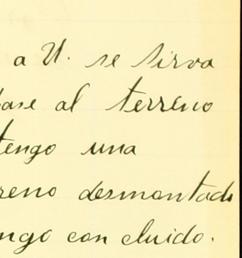 a U. se sirva
pase al terreno
tengo una
reno desmontado
ngo con cluido.